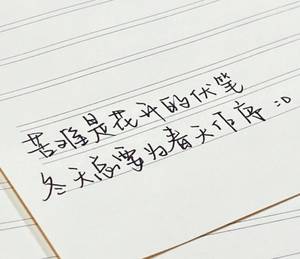 苦难是花开的伏笔
冬天总要为春天作序 :D